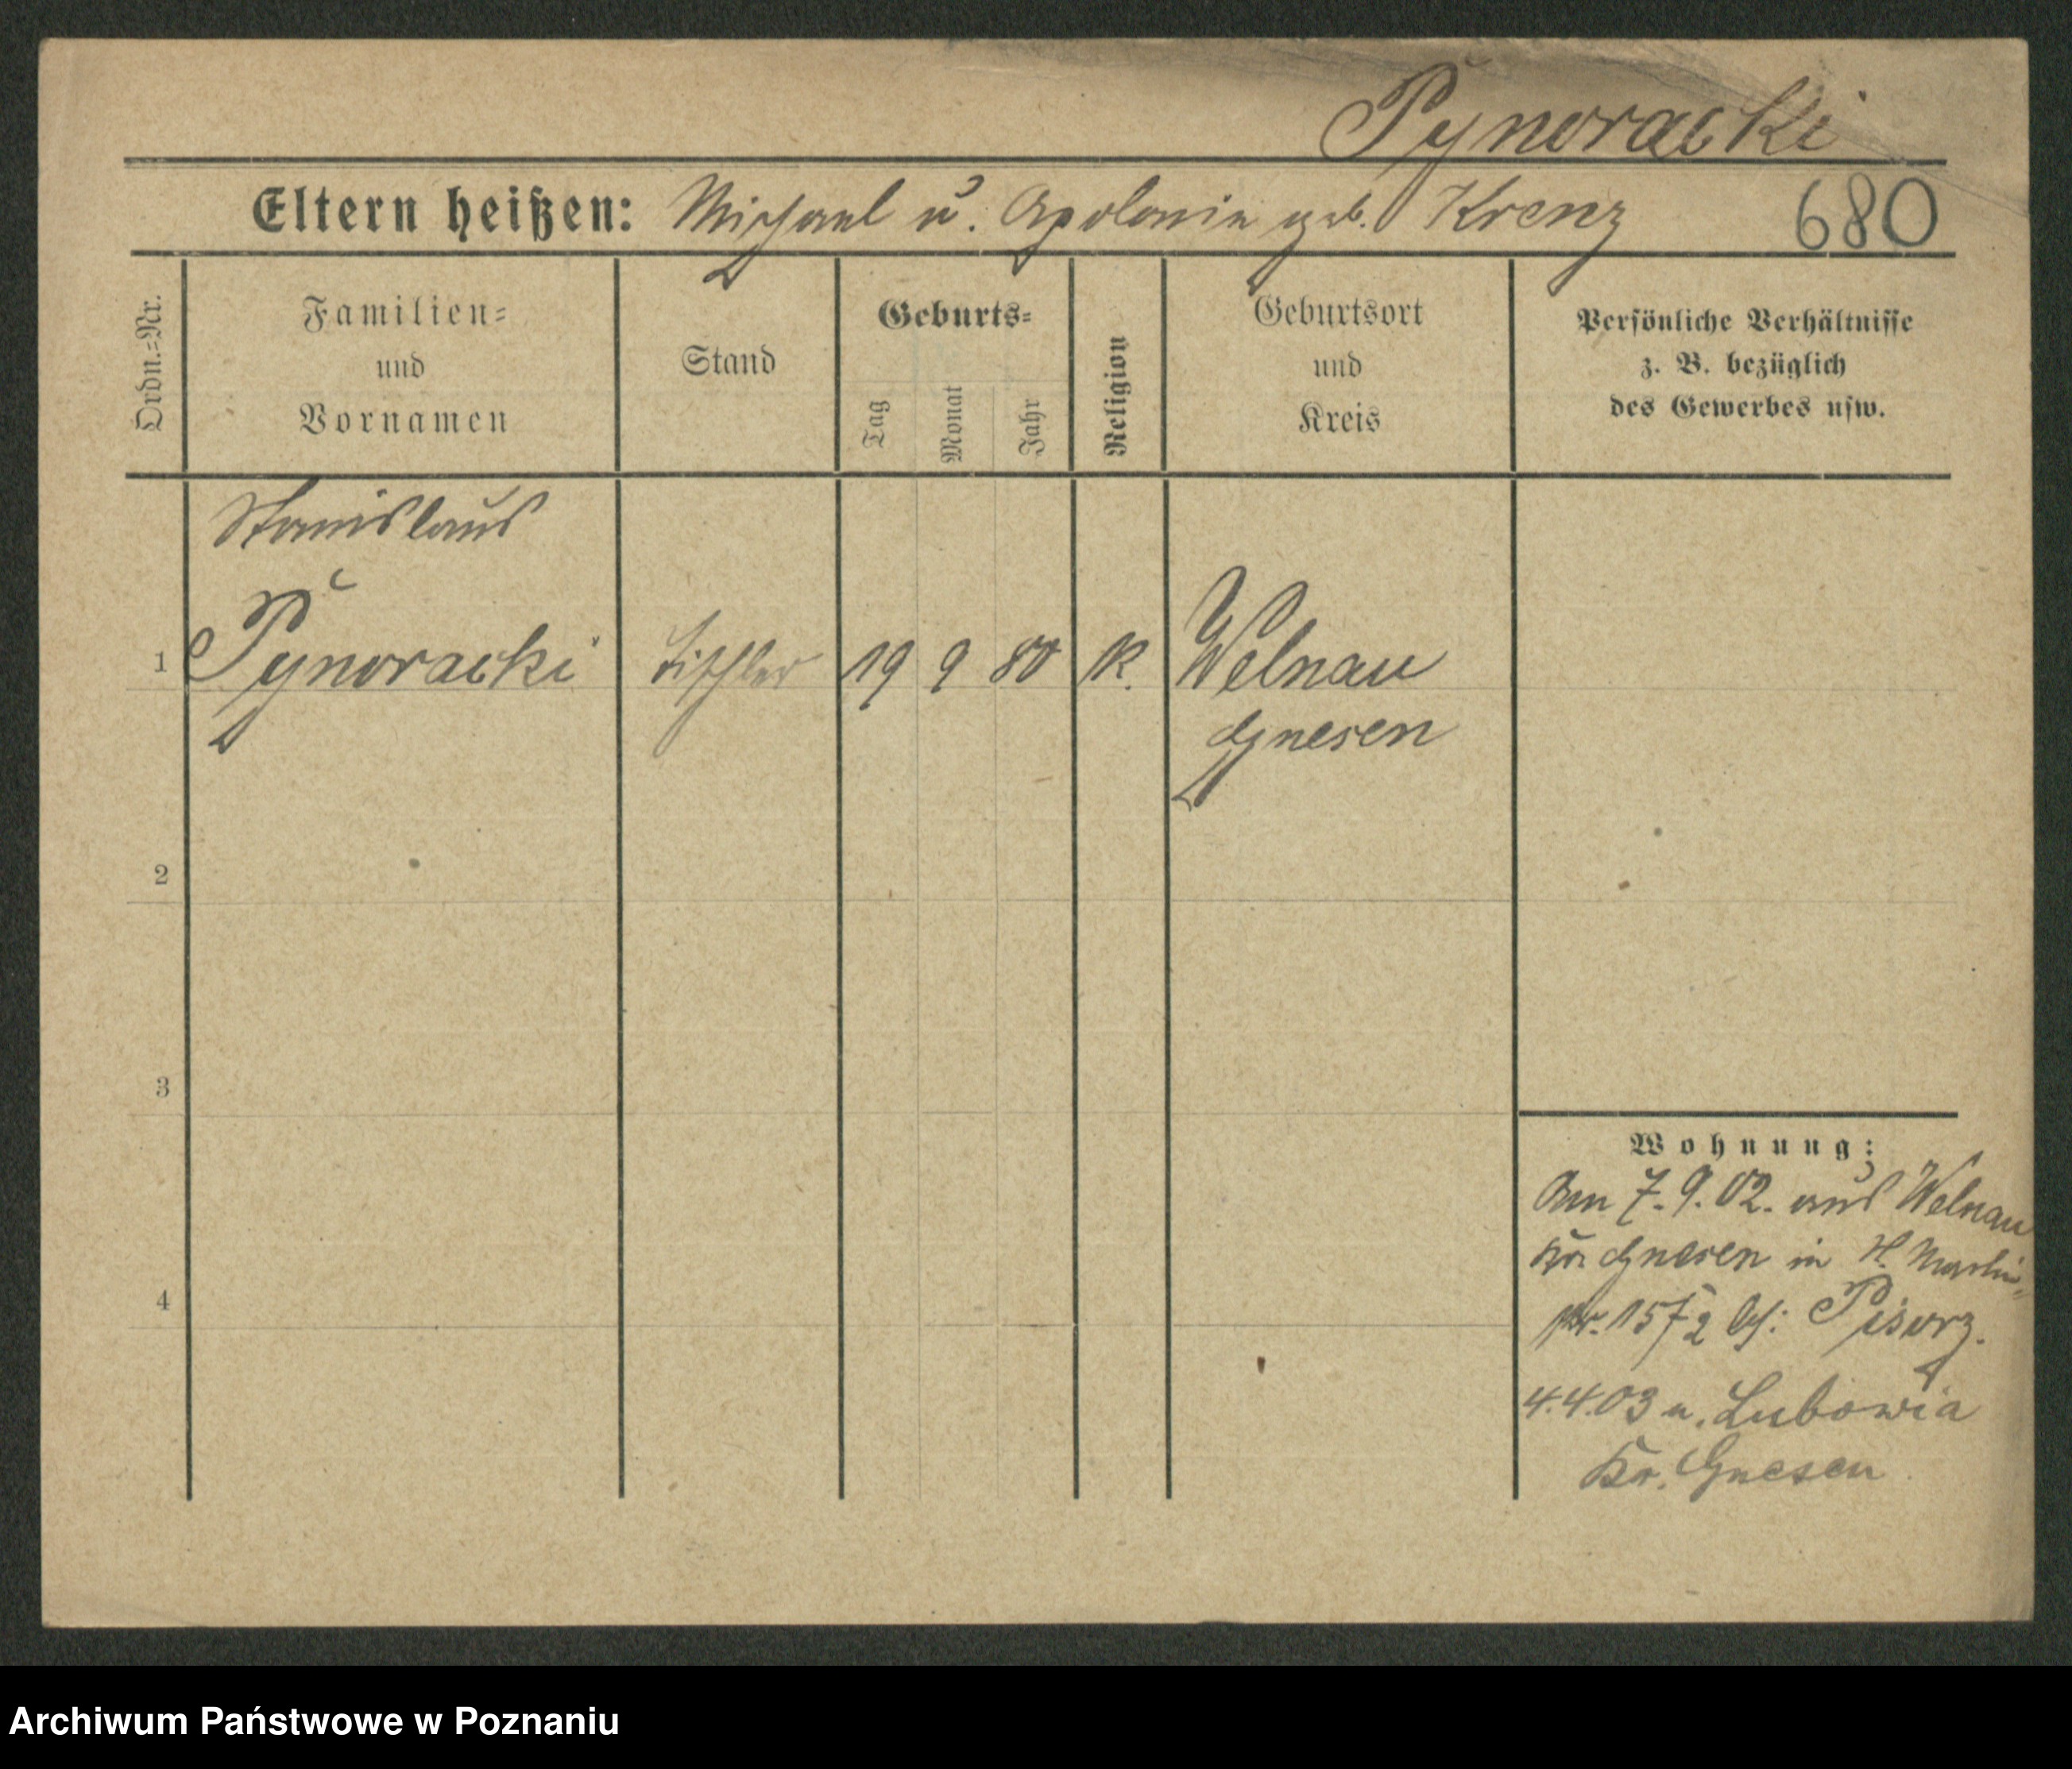 Pynoracki
Eltern heißen: Michael u. Apolonia geb. Krenz 680
Ordn.=Nr.
Familien=
und
Vornamen
Stand
Geburts=
Tag
Monat
Jahr
Religion
Geburtsort
und
Kreis
Persönliche Verhältnisse
z. B. bezüglich
des Gewerbes usw.
Stanislaus
1 Pynoracki Tischler 19 9 80 K. Welnau
Gnesen
2
3
4
Wohnung:
Am 7.9.02. aus Welnau
Kr. Gnesen in
4.4.03 n. Lubowia
Kr. Gnesen
Archiwum Państwowe w Poznaniu